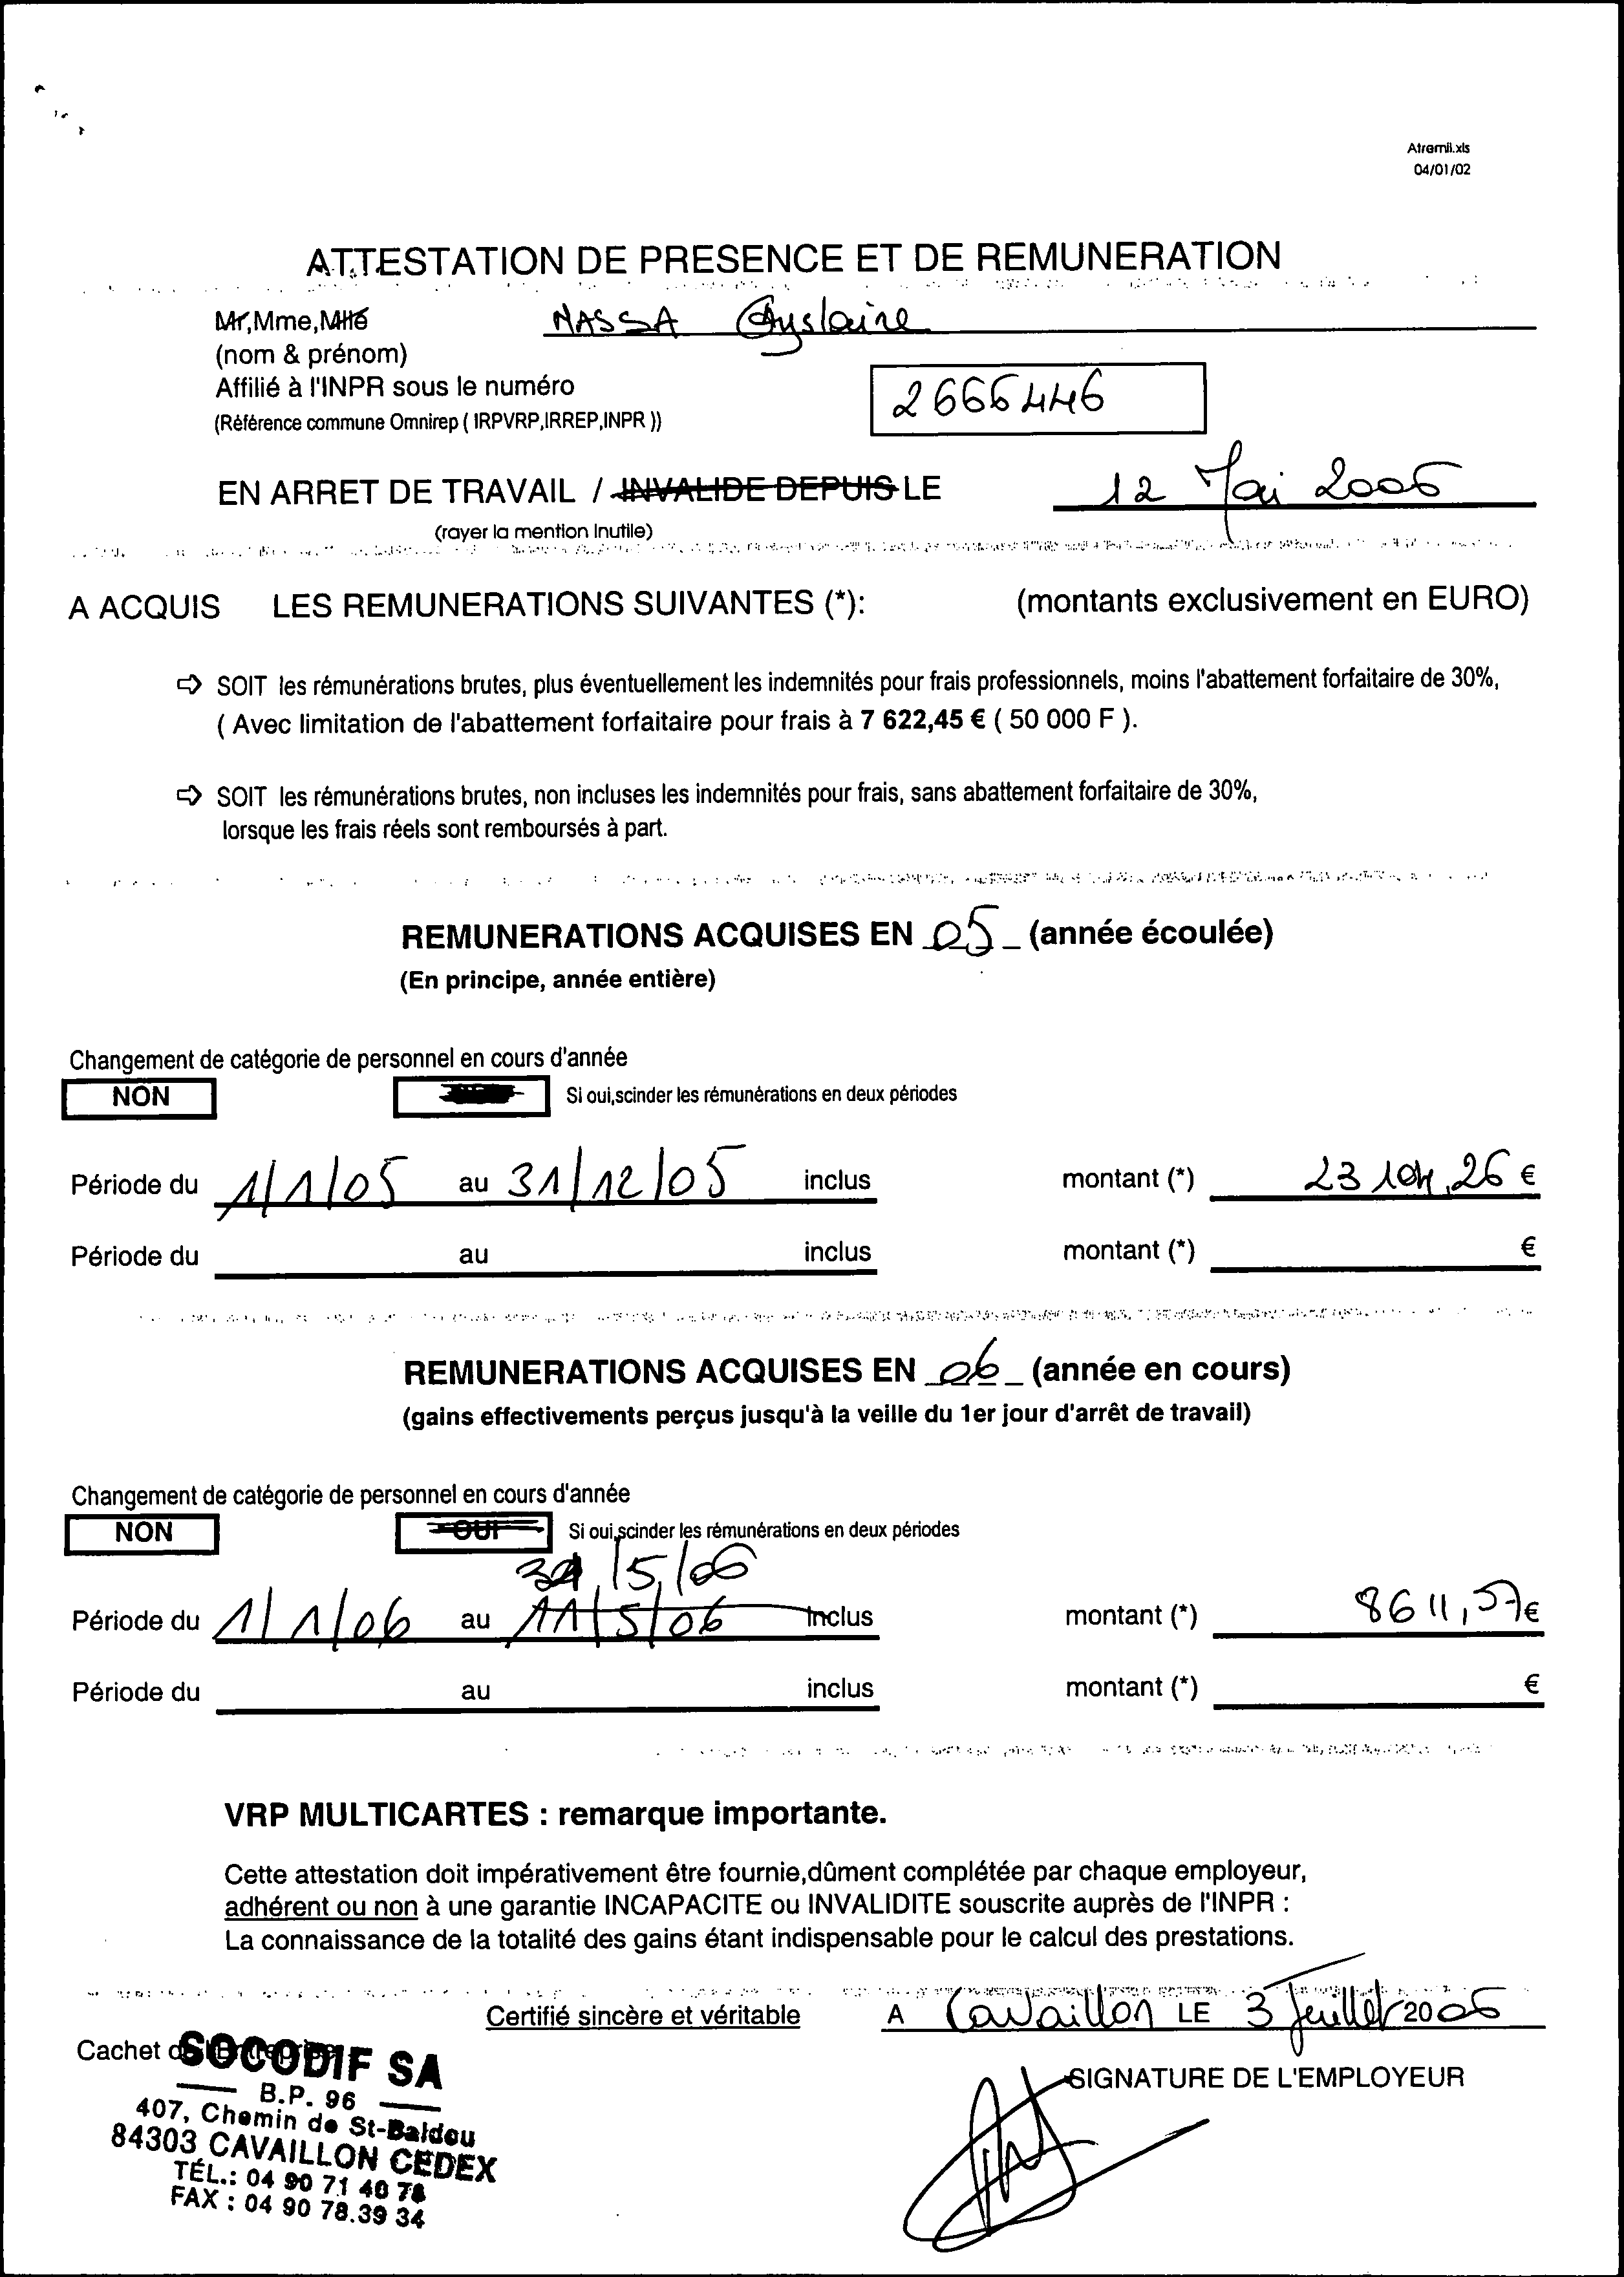 Atremil.xls
04/01/02
ATTESTATION DE PRESENCE ET DE REMUNERATION
Mr,Mme,Mlle NASSA Gyslaine
(nom & prénom)
Affilié à l'INPR sous le numéro 26666446
(Référence commune Omnirep ( IRPVRP,IRREP,INPR ))
EN ARRET DE TRAVAIL / INVALIDE DEPUIS LE 12 Mai 2006
(rayer la mention inutile)
A ACQUIS LES REMUNERATIONS SUIVANTES (*): (montants exclusivement en EURO)
⇨ SOIT les rémunérations brutes, plus éventuellement les indemnités pour frais professionnels, moins l'abattement forfaitaire de 30%,
( Avec limitation de l'abattement forfaitaire pour frais à 7 622,45 € ( 50 000 F ).
⇨ SOIT les rémunérations brutes, non incluses les indemnités pour frais, sans abattement forfaitaire de 30%,
lorsque les frais réels sont remboursés à part.
REMUNERATIONS ACQUISES EN 05 (année écoulée)
(En principe, année entière)
Changement de catégorie de personnel en cours d'année
NON Si oui,scinder les rémunérations en deux périodes
Période du 1/1/05 au 31/12/05 inclus montant (*) 23 104,26 €
Période du au inclus montant (*) €
REMUNERATIONS ACQUISES EN 06 (année en cours)
(gains effectivements perçus jusqu'à la veille du 1er jour d'arrêt de travail)
Changement de catégorie de personnel en cours d'année
NON OUI Si oui,scinder les rémunérations en deux périodes
31/5/06
Période du 1/1/06 au 11/5/06 inclus montant (*) 8611,57€
Période du au inclus montant (*) €
VRP MULTICARTES : remarque importante.
Cette attestation doit impérativement être fournie,dûment complétée par chaque employeur,
adhérent ou non à une garantie INCAPACITE ou INVALIDITE souscrite auprès de l'INPR :
La connaissance de la totalité des gains étant indispensable pour le calcul des prestations.
Certifié sincère et véritable A Cavaillon LE 3 Juillet 2006
Cachet de l'Entreprise
SIGNATURE DE L'EMPLOYEUR
SOCODIF SA
B.P. 96
407, Chemin de St-Baldou
84303 CAVAILLON CEDEX
TÉL.: 04 90 71 40 78
FAX : 04 90 78.39 34